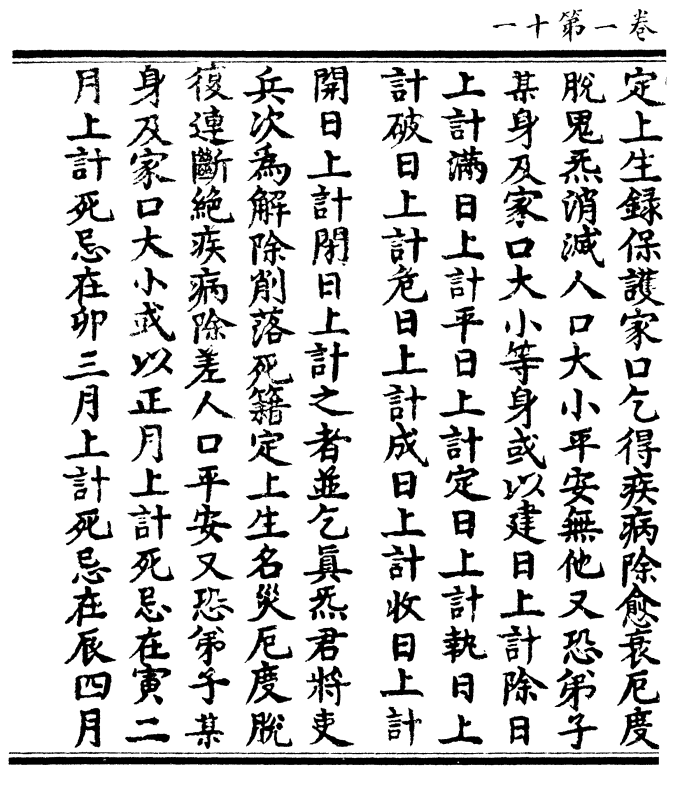 卷一第十一
定上生録保護家口乞得疾病除愈衰厄度
脫鬼炁消滅人口大小平安無他又恐弟子
某身及家口大小等身或以建日上計除日
上計滿日上計平日上計定日上計執日上
計破日上計危日上計成日上計收日上計
開日上計閉日上計之者並乞眞炁君將吏
兵次爲解除削落死籍定上生名災厄度脫
復連斷絶疾病除差人口平安又恐弟子某
身及家口大小或以正月上計死忌在寅二
月上計死忌在卯三月上計死忌在辰四月